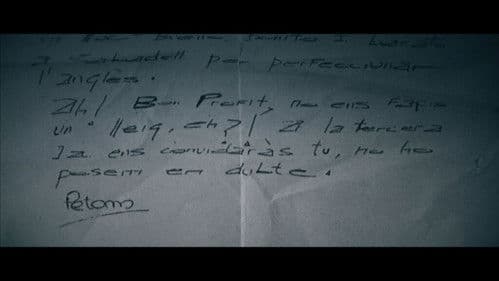 a per perfeccionar
l'anglès.
Ah! Bon Profit, no ens facis
un lleig, eh?! A la tercera
Ja ens convidaràs tu, no ho
posem en dubte.
Petons